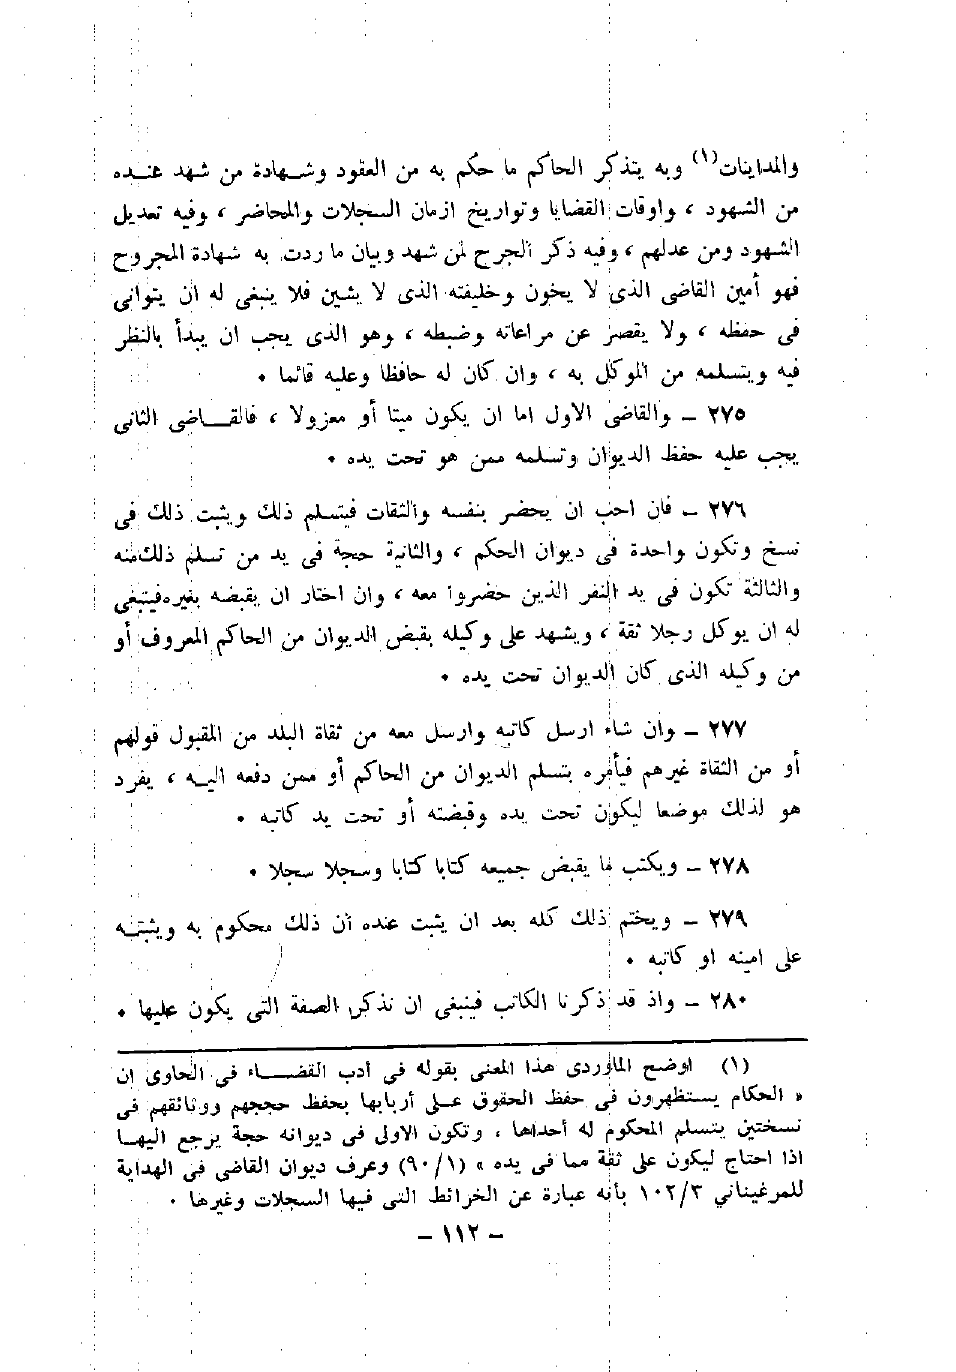 والمداينات(١) وبه يتذكر الحاكم ما حكم به من العقود وشهادة من شهد عنده
من الشهود ، واوقات القضايا وتواريخ ازمان السجلات والمحاضر ، وفيه تعديل
الشهود ومن عدلهم ، وفيه ذكر الجرح لمن شهد وبيان ما ردت به شهادة المجروح
فهو أمين القاضى الذى لا يخون وخليفته الذى لا يشين فلا ينبغى له ان يتوانى
فى حفظه ، ولا يقصر عن مراعاته وضبطه ، وهو الذى يجب ان يبدأ بالنظر
فيه ويتسلمه من الموكل به ، وان كان له حافظا وعليه قائما .
٢٧٥ - والقاضى الاول اما ان يكون ميتا أو معزولا ، فالقاضى الثانى
يجب عليه حفظ الديوان وتسلمه ممن هو تحت يده .
٢٧٦ - فان احب ان يحضر بنفسه والثقات فيتسلم ذلك ويثبت ذلك فى
نسخ وتكون واحدة فى ديوان الحكم ، والثانية حجة فى يد من تسلم ذلك منه
والثالثة تكون فى يد النفر الذين حضروا معه ، وان اختار ان يقبضه بغيره فينبغى
له ان يوكل رجلا ثقة ، ويشهد على وكيله بقبض الديوان من الحاكم المعروف أو
من وكيله الذى كان الديوان تحت يده .
٢٧٧ - وان شاء ارسل كاتبه وارسل معه من ثقاة البلد من المقبول قولهم
أو من الثقاة غيرهم فيأمره بتسلم الديوان من الحاكم أو ممن دفعه اليه ، يفرد
هو لذلك موضعا ليكون تحت يده وقبضته أو تحت يد كاتبه .
٢٧٨ - ويكتب ما يقبض جميعه كتابا كتابا وسجلا سجلا .
٢٧٩ - ويختم ذلك كله بعد ان يثبت عنده أن ذلك محكوم به ويثبته
على امينه او كاتبه .
٢٨٠ - واذ قد ذكرنا الكاتب فينبغى ان نذكر الصفة التى يكون عليها .
(١) اوضح الماوردى هذا المعنى بقوله فى أدب القضاء فى الحاوى ان
« الحكام يستظهرون فى حفظ الحقوق على أربابها بحفظ حججهم ووثائقهم فى
نسختين يتسلم المحكوم له أحداها ، وتكون الاولى فى ديوانه حجة يرجع اليها
اذا احتاج ليكون على ثقة مما فى يده » (٩٠/١) وعرف ديوان القاضى فى الهداية
للمرغيناني ١٠٢/٣ بأنه عبارة عن الخرائط التى فيها السجلات وغيرها .
- ١١٢ -